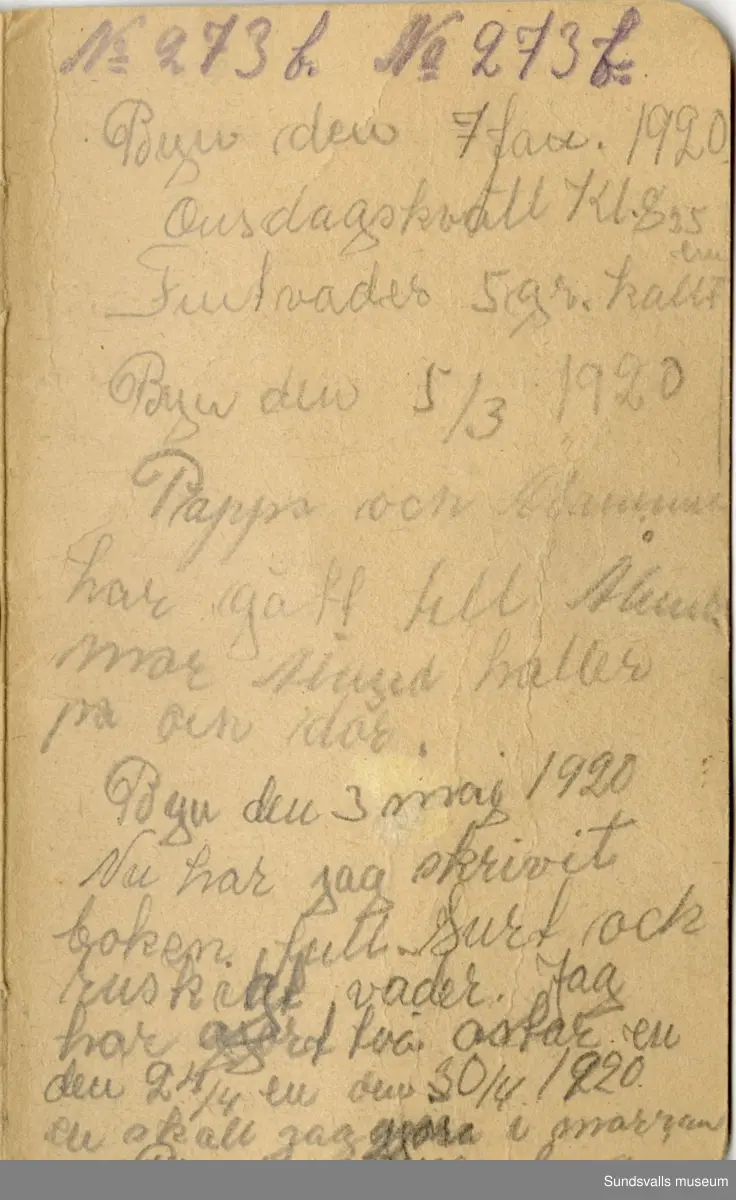 No 273 b. No 273 b
Byn den 7 Jan. 1920.
Onsdagskväll Kl. 8 35
em
Fint vader 5 gr. kallt
Byn den 5/3 1920
Pappa och
har gått till
mor Alund haller
på och dör.
Byn den 3 maj 1920
Nu har jag skrivit
boken full. Surt och
ruskigt vader. Jag
har gjort två ostar en
den 24/4 en den 30/4 1920.
en skall jag göra i morgan
Sundsvalls museum